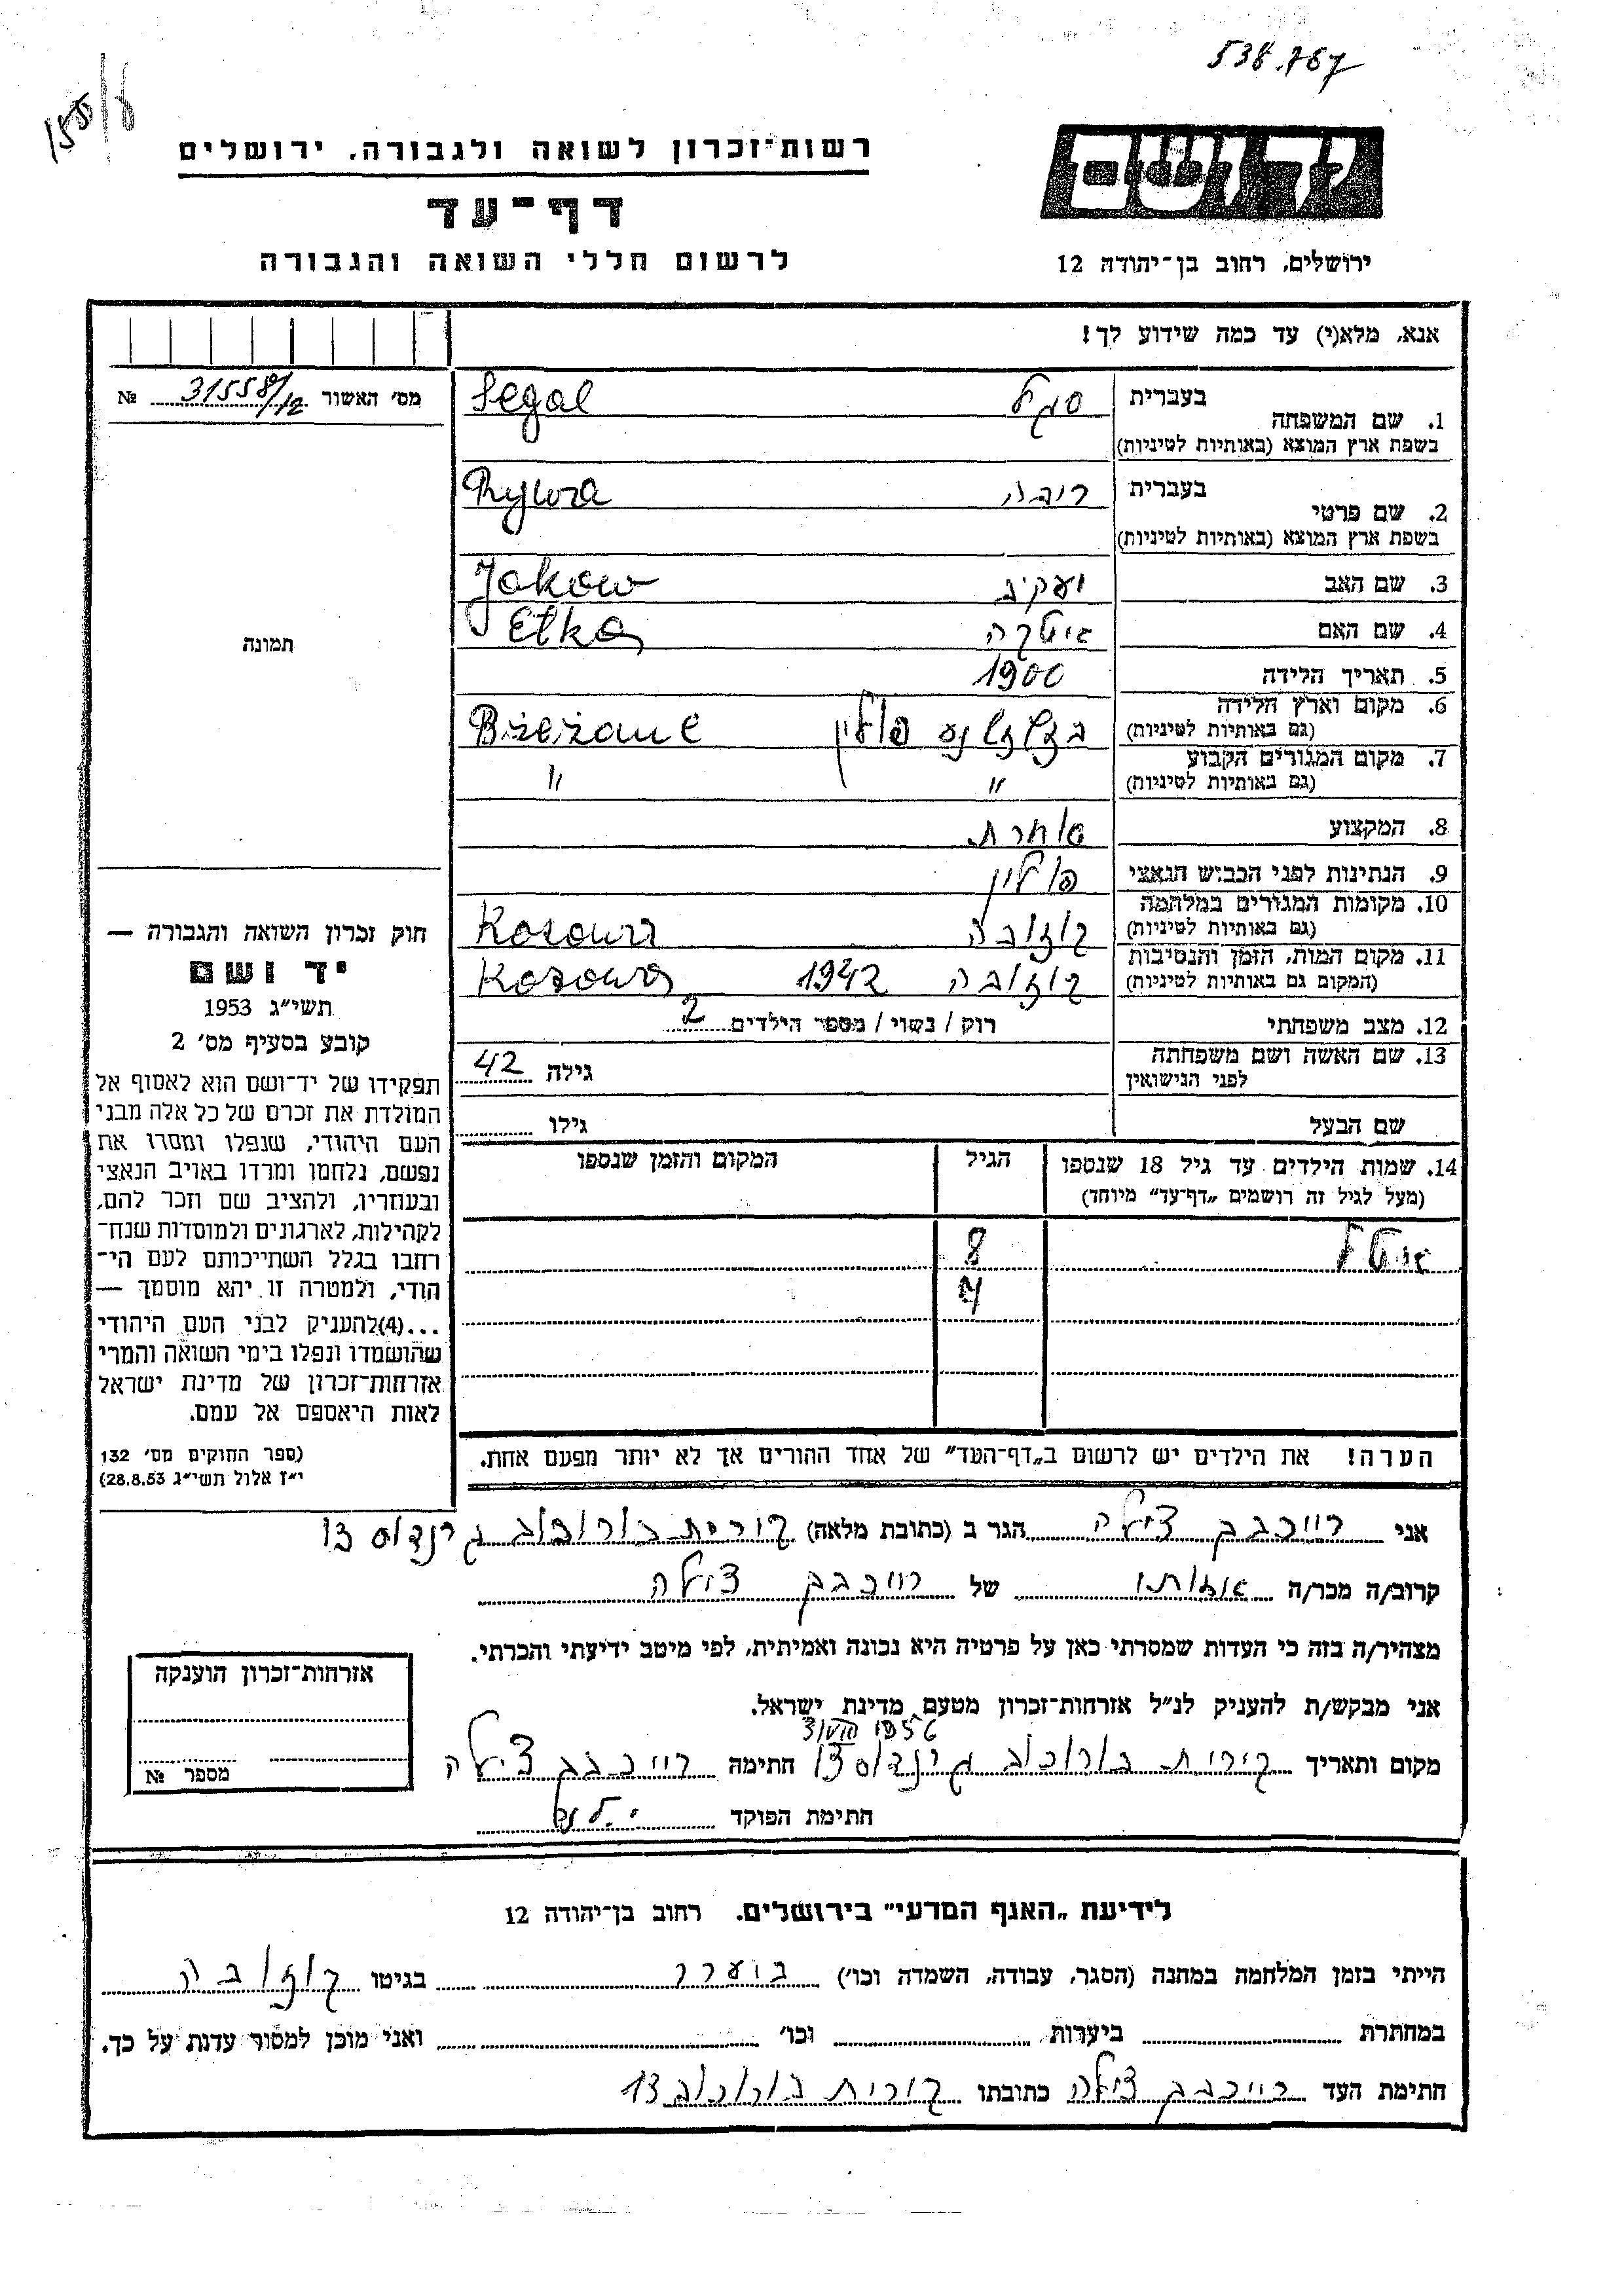 538.767
155/8
רשות־זכרון לשואה ולגבורה, ירושלים
דף־עד
לרשום חללי השואה והגבורה
יד ושם
ירושלים, רחוב בן־יהודה 12
אנא, מלא(י) עד כמה שידוע לך!
מס׳ האשור 31558/12 №
תמונה
1. שם המשפחה
בעברית סגל Segal
בשפת ארץ המוצא (באותיות לטיניות)
2. שם פרטי
בעברית ריבה Rywa
בשפת ארץ המוצא (באותיות לטיניות)
3. שם האב יעקב Jakow
4. שם האם איטקה Etka
5. תאריך הלידה 1900
6. מקום וארץ הלידה
(גם באותיות לטיניות) פולין Bżeżane
7. מקום המגורים הקבוע
(גם באותיות לטיניות) " "
8. המקצוע סוחרת
9. הנתינות לפני הכבוש הנאצי פולין
10. מקומות המגורים במלחמה
(גם באותיות לטיניות) קוזובה Kozowa
11. מקום המות, הזמן והנסיבות
(המקום גם באותיות לטיניות) קוזובה 1942 Kozowa
12. מצב משפחתי רוק / נשוי / מספר הילדים 2
13. שם האשה ושם משפחתה
לפני הנישואין גילה 42
שם הבעל גילו
14. שמות הילדים עד גיל 18 שנספו
(מעל לגיל זה רושמים „דף־עד״ מיוחד)
הגיל
המקום והזמן שנספו
איטל 8
4
הערה! את הילדים יש לרשום ב„דף־העד״ של אחד ההורים אך לא יותר מפעם אחת.
חוק זכרון השואה והגבורה —
יד ושם
תשי״ג 1953
קובע בסעיף מס׳ 2
תפקידו של יד־ושם הוא לאסוף אל
המולדת את זכרם של כל אלה מבני
העם היהודי, שנפלו ומסרו את
נפשם, נלחמו ומרדו באויב הנאצי
ובעוזריו, ולהציב שם וזכר להם,
לקהילות, לארגונים ולמוסדות שנח־
רחבו בגלל השתייכותם לעם הי־
הודי, ולמטרה זו יהא מוסמך —
...(4)להעניק לבני העם היהודי
שהושמדו ונפלו בימי השואה והמרי
אזרחות־זכרון של מדינת ישראל
לאות היאספם אל עמם.
(ספר החוקים מס׳ 132
י״ז אלול תשי״ג 28.8.53)
אני רייכבך צילה הגר ב (כתובת מלאה) קרית בורוכוב 13
קרוב/ה מכר/ה אחותו של רייכבך צילה
מצהיר/ה בזה כי העדות שמסרתי כאן על פרטיה היא נכונה ואמיתית, לפי מיטב ידיעתי והכרתי.
אני מבקש/ת להעניק לנ״ל אזרחות־זכרון מטעם מדינת ישראל.
מקום ותאריך קרית בורוכוב 13 חתימה רייכבך צילה
חתימת הפוקד
אזרחות־זכרון הוענקה
מספר №
לידיעת „האגף המדעי״ בירושלים, רחוב בן־יהודה 12
הייתי בזמן המלחמה במחנה (הסגר, עבודה, השמדה וכו׳) בגיטו קוזובה
במחתרת ביערות וכו׳ ואני מוכן למסור עדות על כך.
חתימת העד רייכבך צילה כתובתו קרית בורוכוב 13